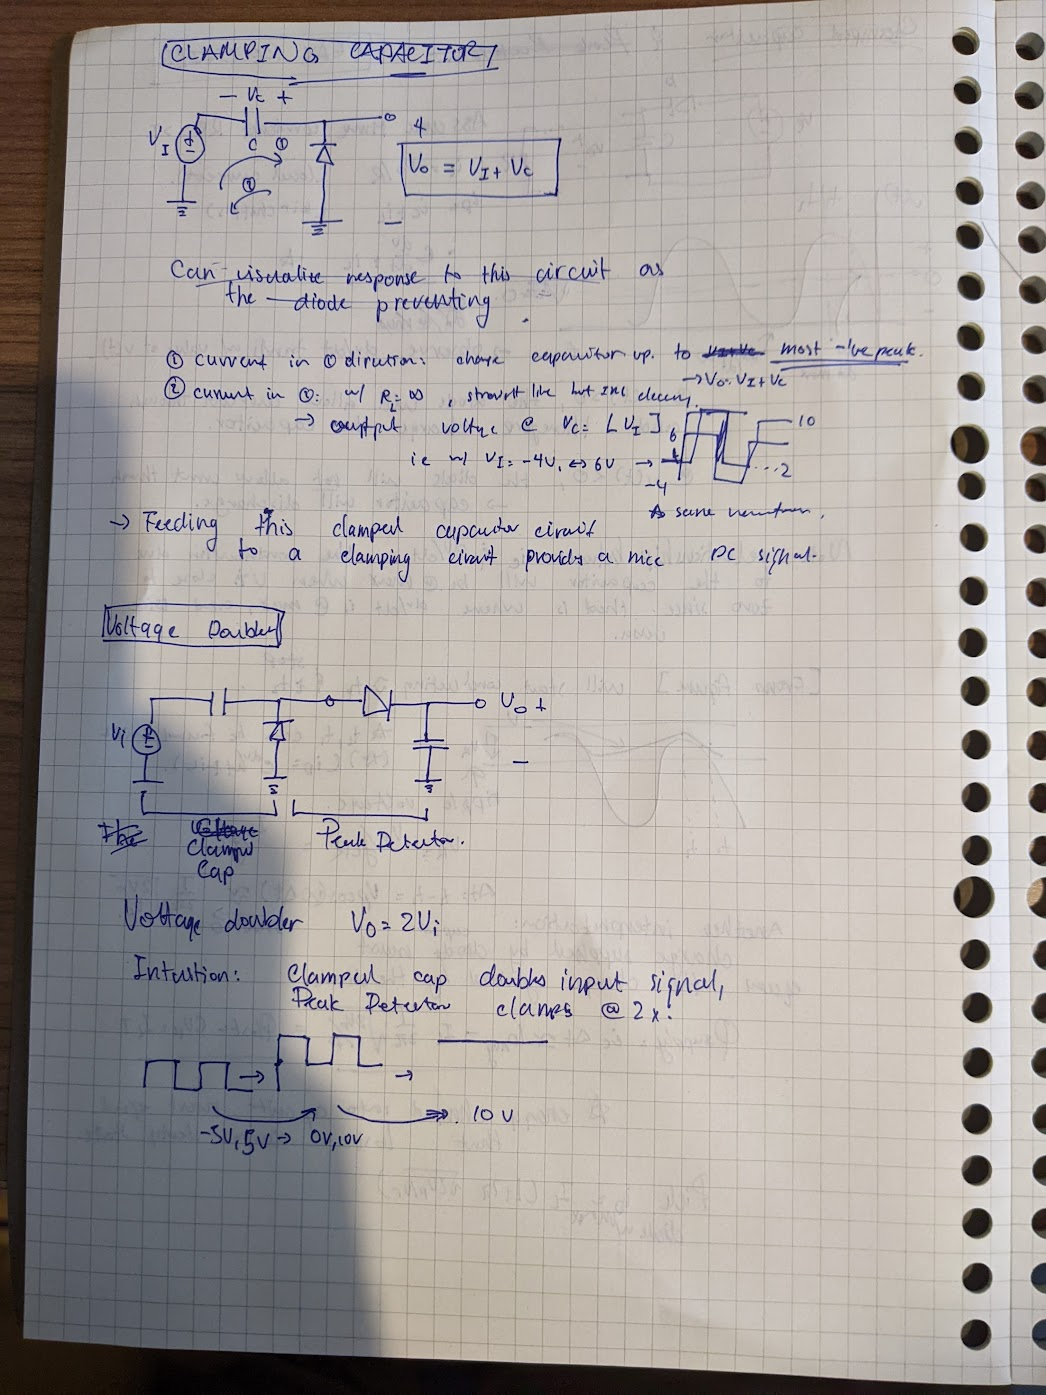 CLAMPING CAPACITOR
- Vc +
VI
C ①
②
Vo = VI + Vc
-
Can visualize response to this circuit as
the diode preventing
① current in ① dirution: charge capacitor up to most -'ve peak.
→ Vo = VI + Vc
② current in ②: w/ RL = ∞,
→ output voltage @ Vc = [VI]
ie w/ VI = -4V, ↔ 6V →
6
-4
10
...2
→ Feeding this clamped capacitor circuit
to a clamping circuit provides a nice DC signal.
Voltage Doubler
Vi
Vo +
-
The
Clamped
Cap
Peak Detector.
Voltage doubler Vo = 2Vi
Intuition: Clamped cap doubles input signal,
Peak Detector clamps @ 2x.
→
→
-5V, 5V → 0V, 10V
10 V